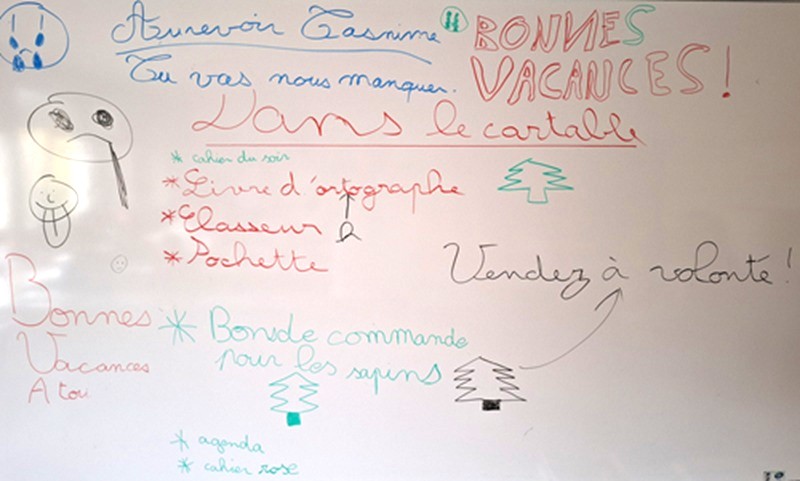 Aurevoir Tasnime
Tu vas nous manquer.
BONNES
VACANCES !
Dans le cartable
* cahier du soir
* Livre d'ortographe
h
* Classeur
* Pochette
Vendez à volonté !
Bonnes
Vacances
A tou
* Bon de commande
pour les sapins
* agenda
* cahier rose